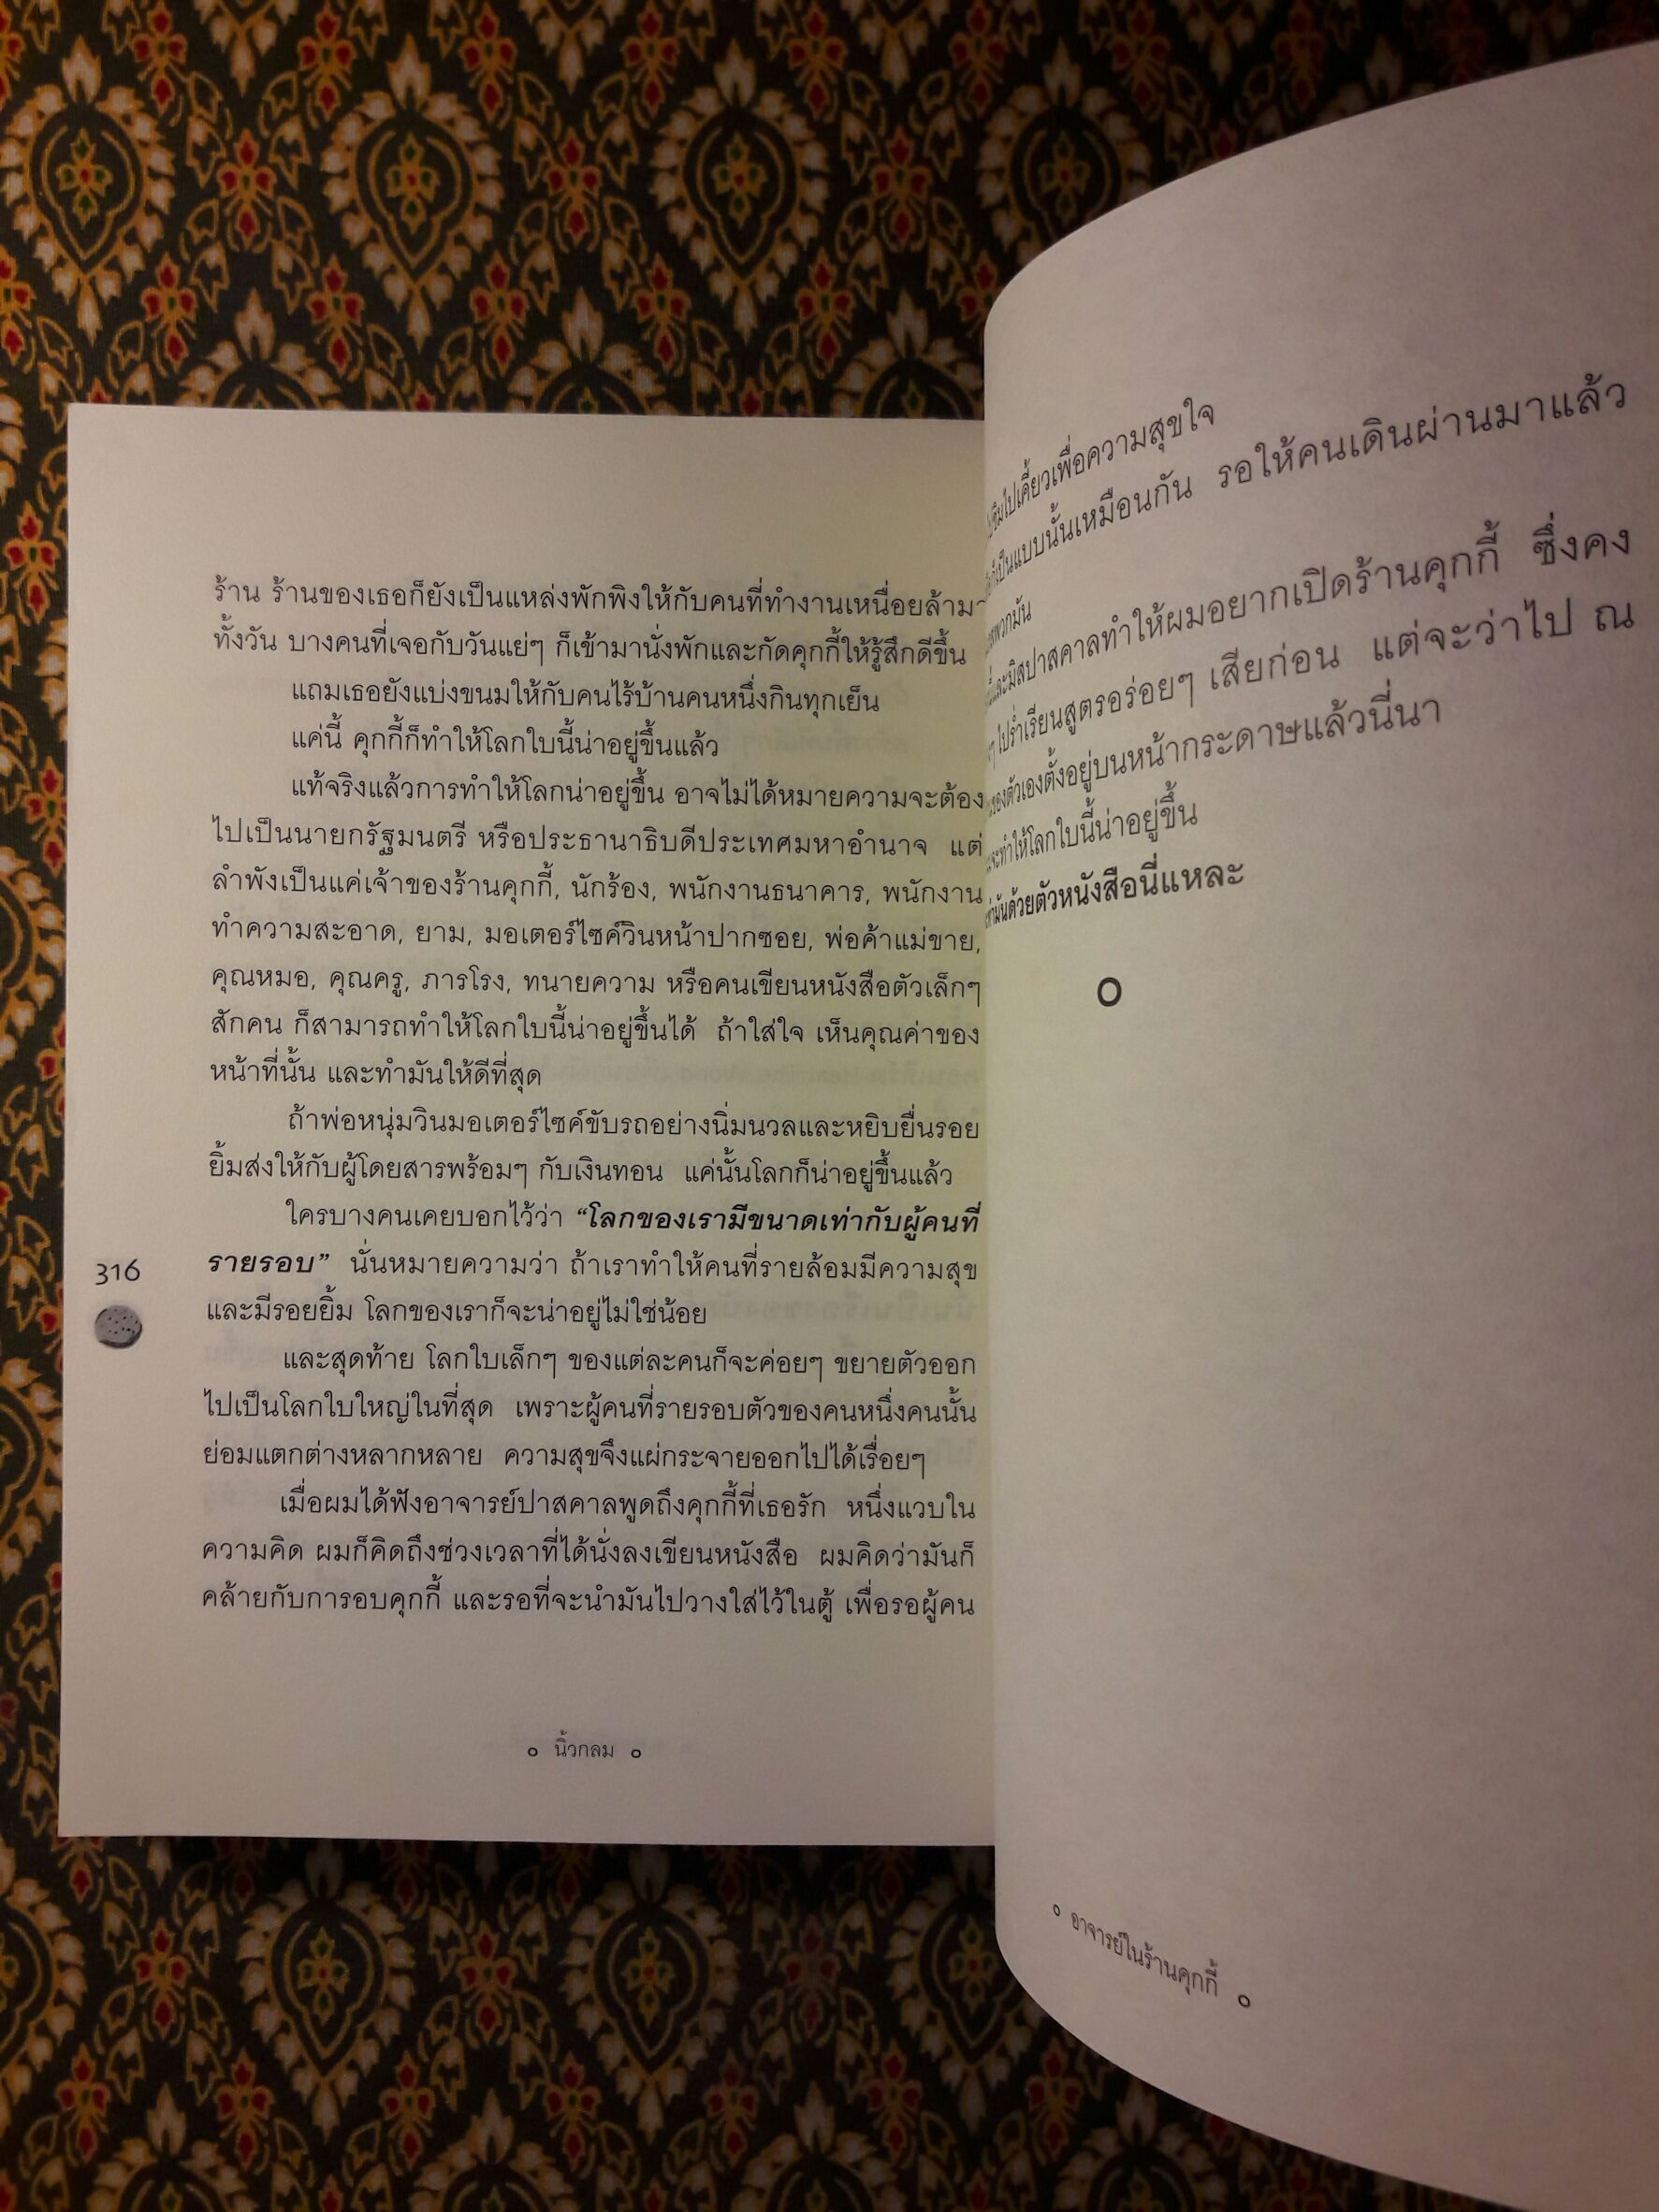 ร้าน ร้านของเธอก็ยังเป็นแหล่งพักพิงให้กับคนที่ทำงานเหนื่อยล้ามา
ทั้งวัน บางคนที่เจอกับวันแย่ๆ ก็เข้ามานั่งพักและกัดคุกกี้ให้รู้สึกดีขึ้น
แถมเธอยังแบ่งขนมให้กับคนไร้บ้านคนหนึ่งกินทุกเย็น
แค่นี้ คุกกี้ก็ทำให้โลกใบนี้น่าอยู่ขึ้นแล้ว
แท้จริงแล้วการทำให้โลกน่าอยู่ขึ้น อาจไม่ได้หมายความจะต้อง
ไปเป็นนายกรัฐมนตรี หรือประธานาธิบดีประเทศมหาอำนาจ แต่
ลำพังเป็นแค่เจ้าของร้านคุกกี้, นักร้อง, พนักงานธนาคาร, พนักงาน
ทำความสะอาด, ยาม, มอเตอร์ไซค์วินหน้าปากซอย, พ่อค้าแม่ขาย,
คุณหมอ, คุณครู, ภารโรง, ทนายความ หรือคนเขียนหนังสือตัวเล็กๆ
สักคน ก็สามารถทำให้โลกใบนี้น่าอยู่ขึ้นได้ ถ้าใส่ใจ เห็นคุณค่าของ
หน้าที่นั้น และทำมันให้ดีที่สุด
ถ้าพ่อหนุ่มวินมอเตอร์ไซค์ขับรถอย่างนิ่มนวลและหยิบยื่นรอย
ยิ้มส่งให้กับผู้โดยสารพร้อมๆ กับเงินทอน แค่นั้นโลกก็น่าอยู่ขึ้นแล้ว
ใครบางคนเคยบอกไว้ว่า “โลกของเรามีขนาดเท่ากับผู้คนที่
รายรอบ” นั่นหมายความว่า ถ้าเราทำให้คนที่รายล้อมมีความสุข
และมีรอยยิ้ม โลกของเราก็จะน่าอยู่ไม่ใช่น้อย
และสุดท้าย โลกใบเล็กๆ ของแต่ละคนก็จะค่อยๆ ขยายตัวออก
ไปเป็นโลกใบใหญ่ในที่สุด เพราะผู้คนที่รายรอบตัวของคนหนึ่งคนนั้น
ย่อมแตกต่างหลากหลาย ความสุขจึงแผ่กระจายออกไปได้เรื่อยๆ
เมื่อผมได้ฟังอาจารย์ปาสคาลพูดถึงคุกกี้ที่เธอรัก หนึ่งแวบใน
ความคิด ผมก็คิดถึงช่วงเวลาที่ได้นั่งลงเขียนหนังสือ ผมคิดว่ามันก็
คล้ายกับการอบคุกกี้ และรอที่จะนำมันไปวางใส่ไว้ในตู้ เพื่อรอผู้คน
316
นิ้วกลม
ไปเคี้ยวเพื่อความสุขใจ
เป็นแบบนั้นเหมือนกัน รอให้คนเดินผ่านมาแล้ว
พวกมัน
และมิสปาสคาลทำให้ผมอยากเปิดร้านคุกกี้ ซึ่งคง
ไปร่ำเรียนสูตรอร่อยๆ เสียก่อน แต่จะว่าไป ณ
ของตัวเองตั้งอยู่บนหน้ากระดาษแล้วนี่นา
ทำให้โลกใบนี้น่าอยู่ขึ้น
มันด้วยตัวหนังสือนี่แหละ
อาจารย์ในร้านคุกกี้